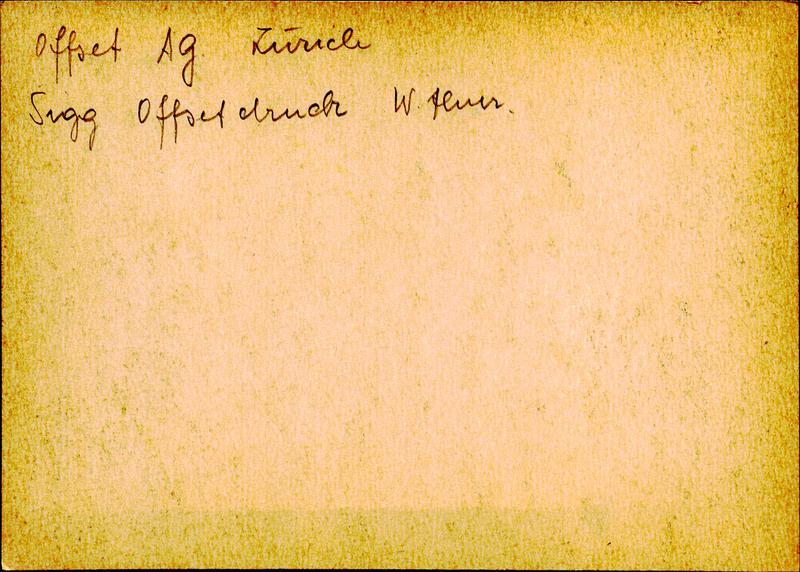 Offset AG Zürich
Sigg Offsetdruck W.thur.